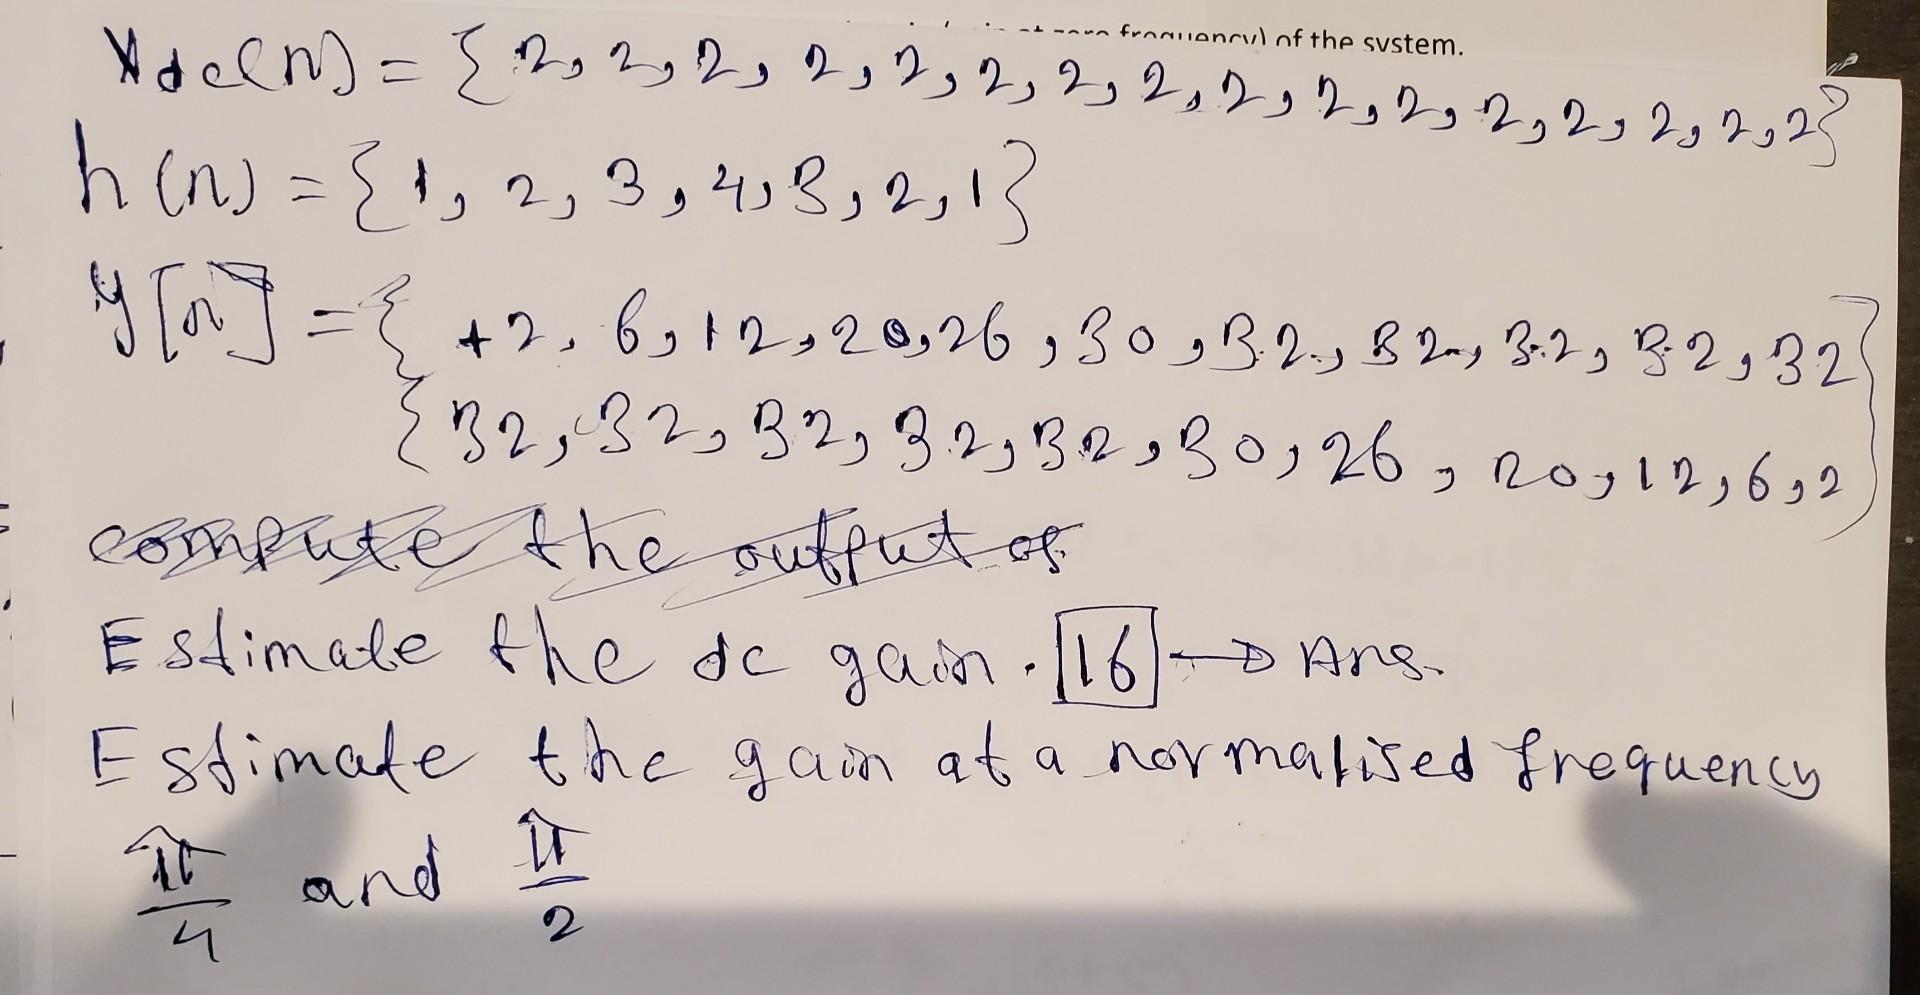 frequency) of the system.
Xdc(n) = {2, 2, 2, 2, 2, 2, 2, 2, 2, 2, 2, 2, 2, 2, 2, 2}
h(n) = {1, 2, 3, 4, 3, 2, 1}
y[n] = { +2, 6, 12, 20, 26, 30, 32, 32, 32, 32, 32
{32, 32, 32, 32, 32, 30, 26, 20, 12, 6, 2}
compute the output of
Estimate the dc gain. 16 → Ans.
Estimate the gain at a normalised frequency
π/4 and π/2